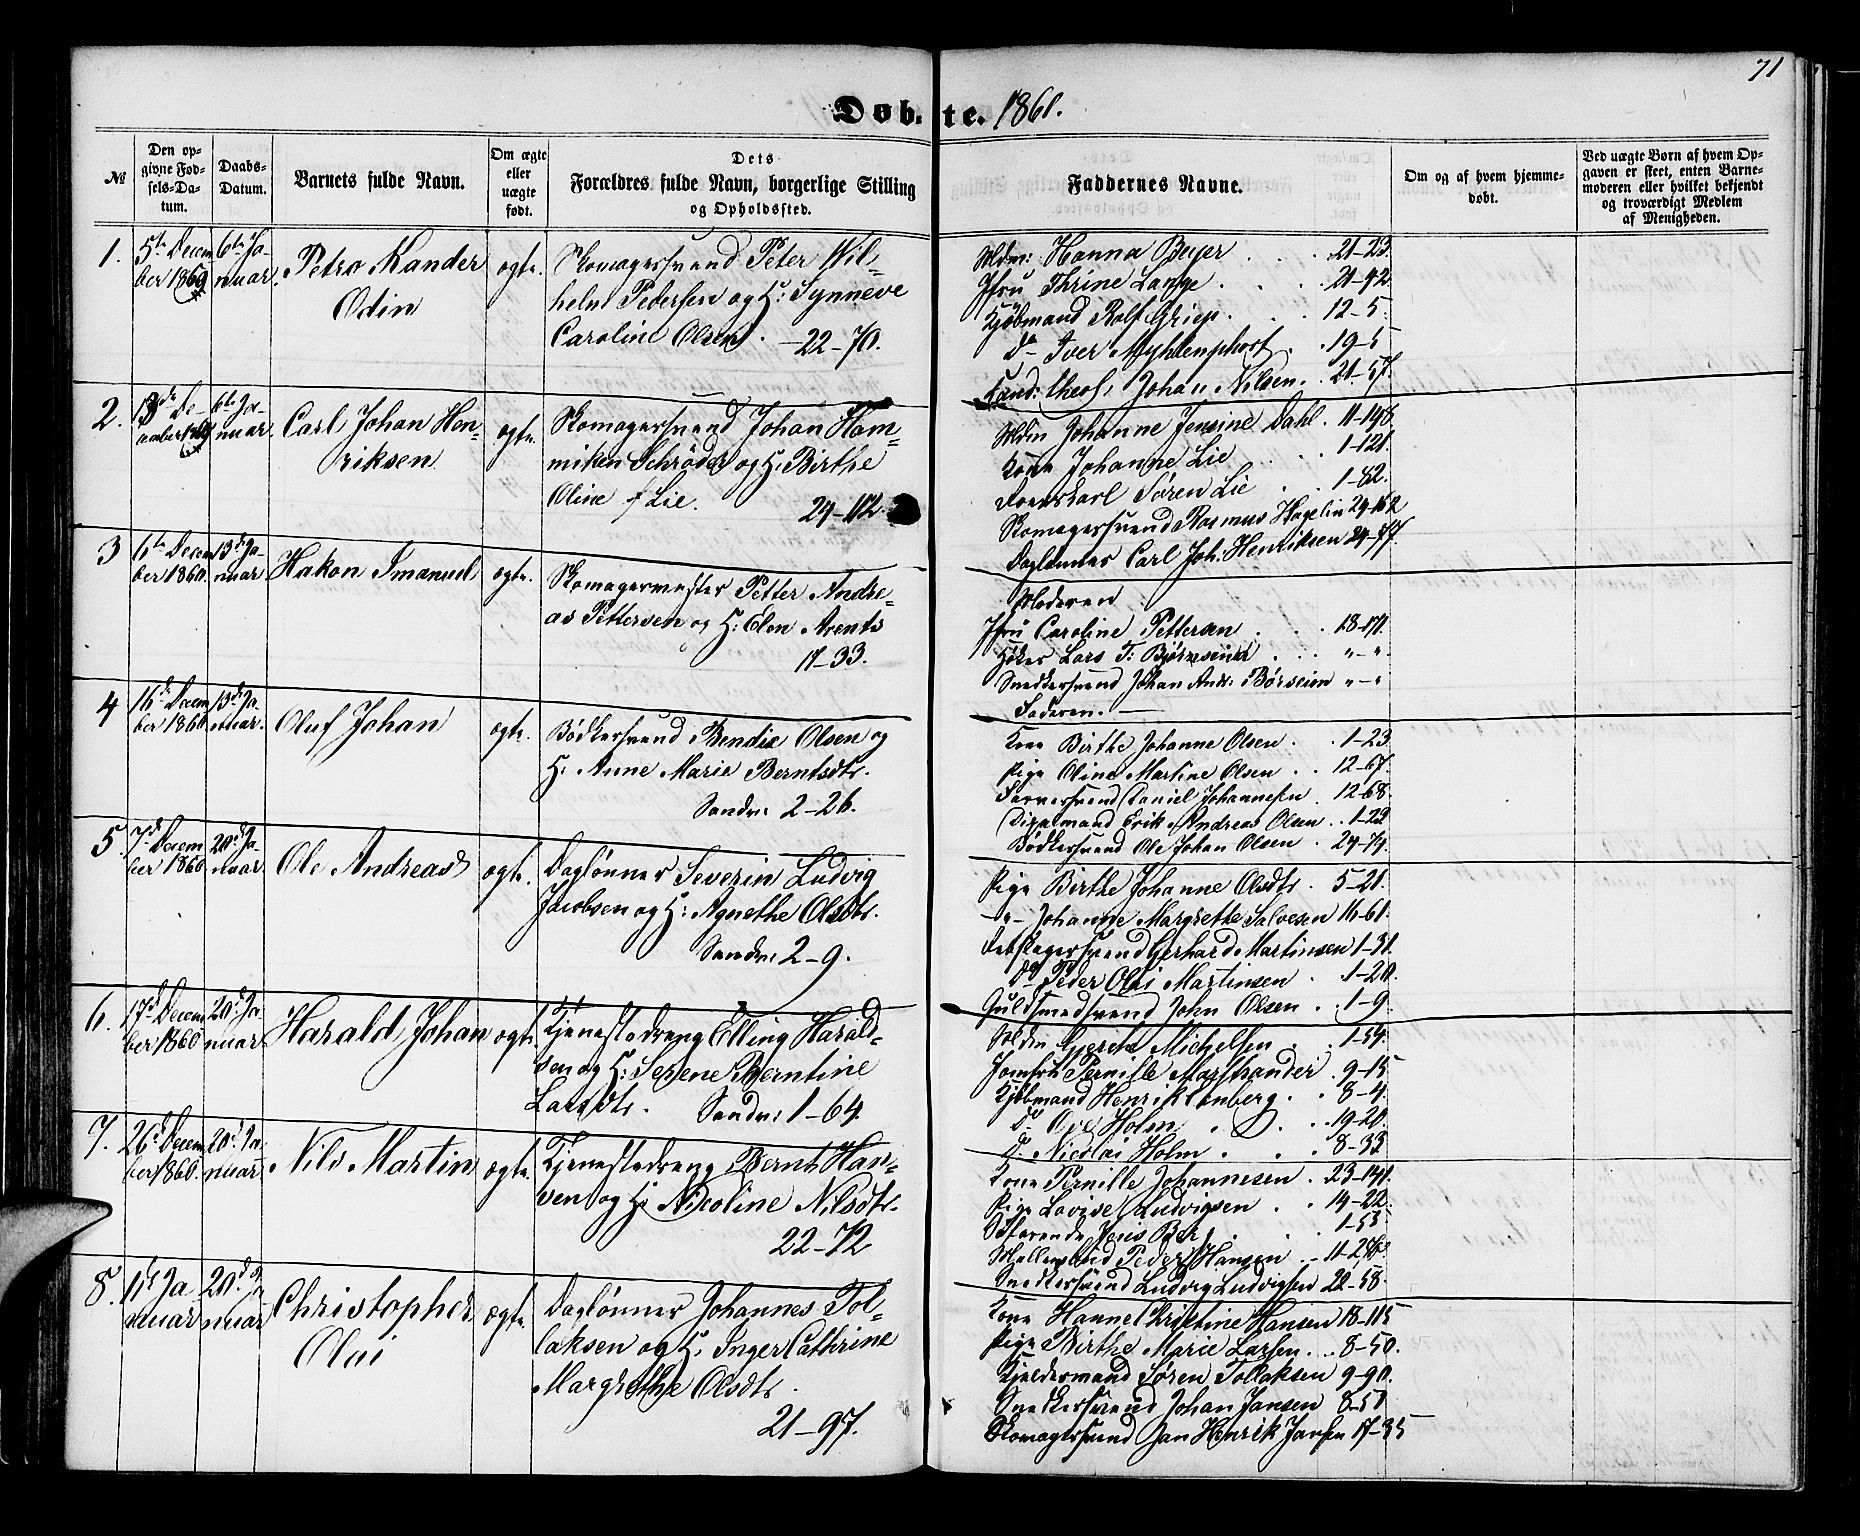 71
Døbte. 1861.
№
Den op-
givne Fød-
sels-Da-
tum.
Daabs-
Datum.
Barnets fulde Navn.
Om ægte
eller
uægte
født.
Dets
Forældres fulde Navn, borgerlige Stilling
og Opholdssted.
Faddernes Navne.
Om og af hvem hjemme-
døbt.
Ved uægte Børn af hvem Op-
gaven er skeet, enten Barne-
moderen eller hvilket bekjendt
og troværdigt Medlem
af Menigheden.
1.
5te Decem
ber 1860
6te Ja-
nuar.
Petra Kander
Odin
ægte.
Skomagersvend Peter Wil=
helm Pedersen og H: Synneve
Caroline Olsen. 22-70.
Mdm: Hanna Beyer 21-23.
Jfru Thrine Lange 21-92
Kjøbmand Rolf Griep. 12-5.
Do Iver Myhlenphort 19-5
Cand: theol: Johan Nilsen. 21-57.
2.
13de De-
6te Ja-
nuar.
Carl Johan Hen=
riksen
ægte.
Skomagersvend Johan Ham=
miken Schrøder og H. Birthe
Oline f Lie.
24-112.
Mdm Johanne Jensine Dahl. 11-148
Kone Johanne Lie 1-121.
Søren Lie 1-82.
Skomagersvend Rasmus Hagelin 24-152
Daglønner Carl Joh: Henriksen 24-77.
3
6te Decem
ber 1860.
13de Ja-
nuar.
Hakon Imanuel
ægte.
Skomagermester Petter Andre=
as Pettersen og H: Elen Arents
17-33.
Moderen
Jfru Caroline Pettersen 18-171.
Høker Lars T: Bjørnseim "-"
Snedkersvend Johan And: Børseim "-"
Faderen.
4
16de Decem
ber 1860.
13de Ja-
nuar.
Oluf Johan
ægte.
Bødkersvend Bendix Olsen og
H: Anne Marie Berntsdtr.
Sandv: 2-26.
Kone Birthe Johanne Olsen. 1-23
Pige Oline Martine Olsen 12-67.
Farversvend Daniel Johannesen 12-68.
Erik Andreas Olsen 1-23
Bødkersvend Ole Johan Olsen 24-79.
5.
7de Decem
ber 1860
20de Ja-
nuar.
Ole Andreas
ægte.
Daglønner Severin Ludvig
Jacobsen og H: Agnethe Olsdtr.
Sandv: 2-9.
Pige Birthe Johanne Olsdtr. 5-21.
-"- Johanne Margrethe Salvesen 16-61.
Rebslagersvend Gerhard Martinsen 1-31.
Do Peder Olai Martinsen 1-20.
Guldsmedsvend John Olsen 1-9.
6.
17de Decem
ber 1860
20de Ja-
nuar.
Harald Johan
ægte.
Tjenestedreng Elling Harald=
sen og H: Serene Berntine
Larsdtr. Sandv: 1-64.
Mdm Gjerte Michelsen 1-54.
Jomfru Pernille Marstrander 9-15
Kjøbmand Henrik Lonberg 8-4.
Do Ove Holm 19-20.
Do Nicolai Holm 8-33
7.
26de Decem
ber 1860.
20de Ja-
nuar.
Nils Martin
ægte.
Tjenestedreng Bernt Han=
sen og H: Nicoline Nilsdtr.
22-72
Kone Pernille Johannesen 23-141.
Pige Lovise Ludvigsen 14-22
Søfarende Jens Berg 1-55
Møllersvend Peder Hansen 11-286
Snedkersvend Ludvig Ludvigsen 22-58.
8.
11de Ja
nuar
20de Ja
nuar
Christopher
Olai
ægte.
Daglønner Johannes Tol=
laksen og H. Inger Cathrine
Margrethe Olsdtr.
21-97.
Kone Hanne Kristine Hansen 18-115
Pige Birthe Marie Larsen 8-50.
Kjeldermand Søren Tollaksen 9-90.
Snedkersvend Johan Jansen 8-51
Skomagersvend Jan Henrik Jansen 17-35